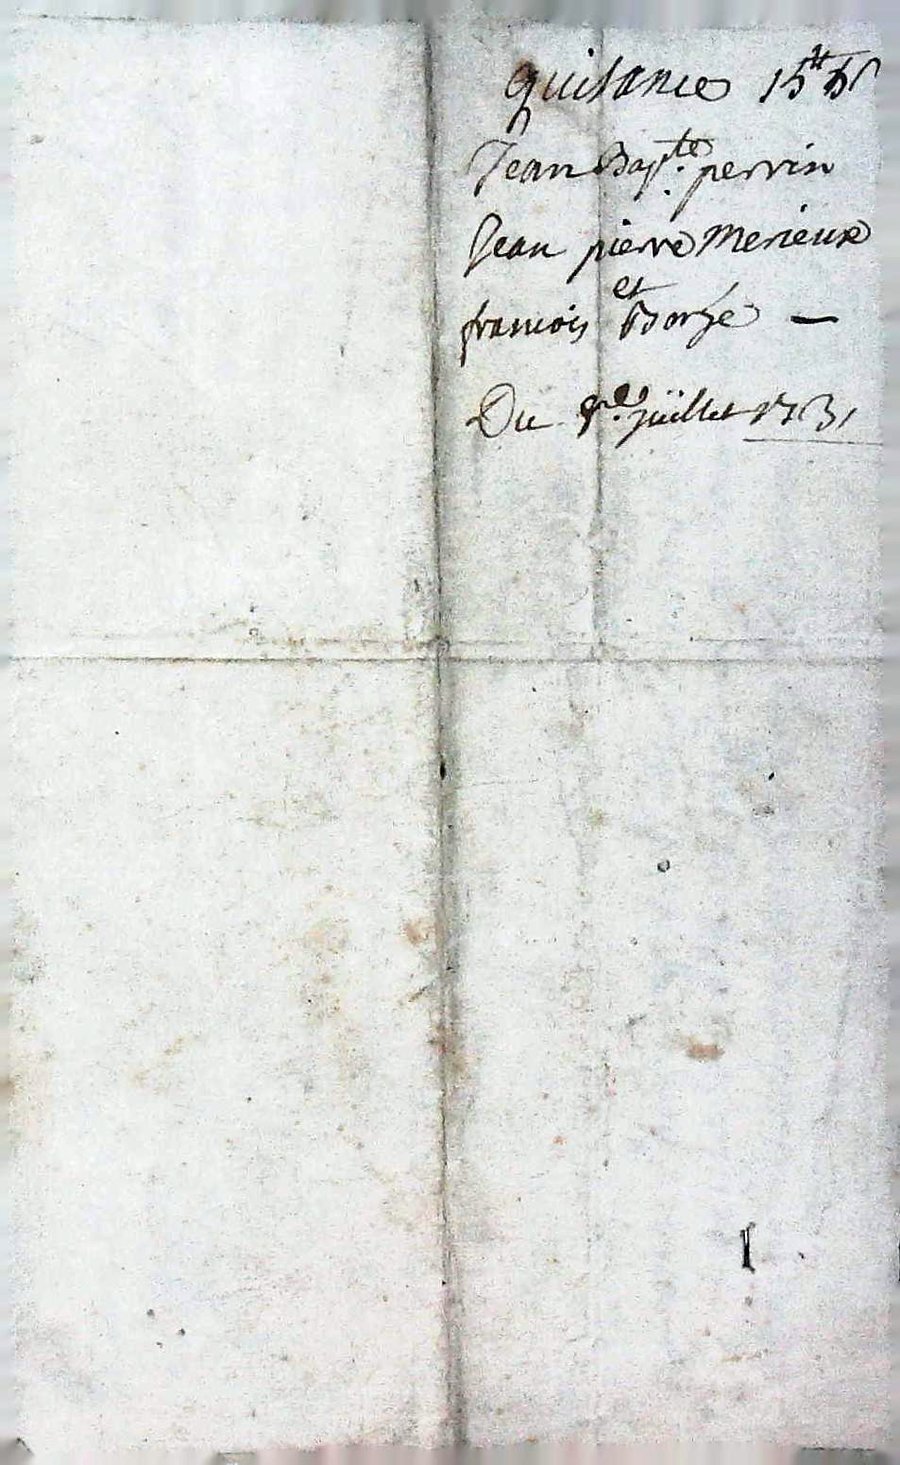 quitance 15 tt 5 s
Jean Bapte. perrin
Jean pierre Merieux
et
francois Borge —
Du juillet 1731